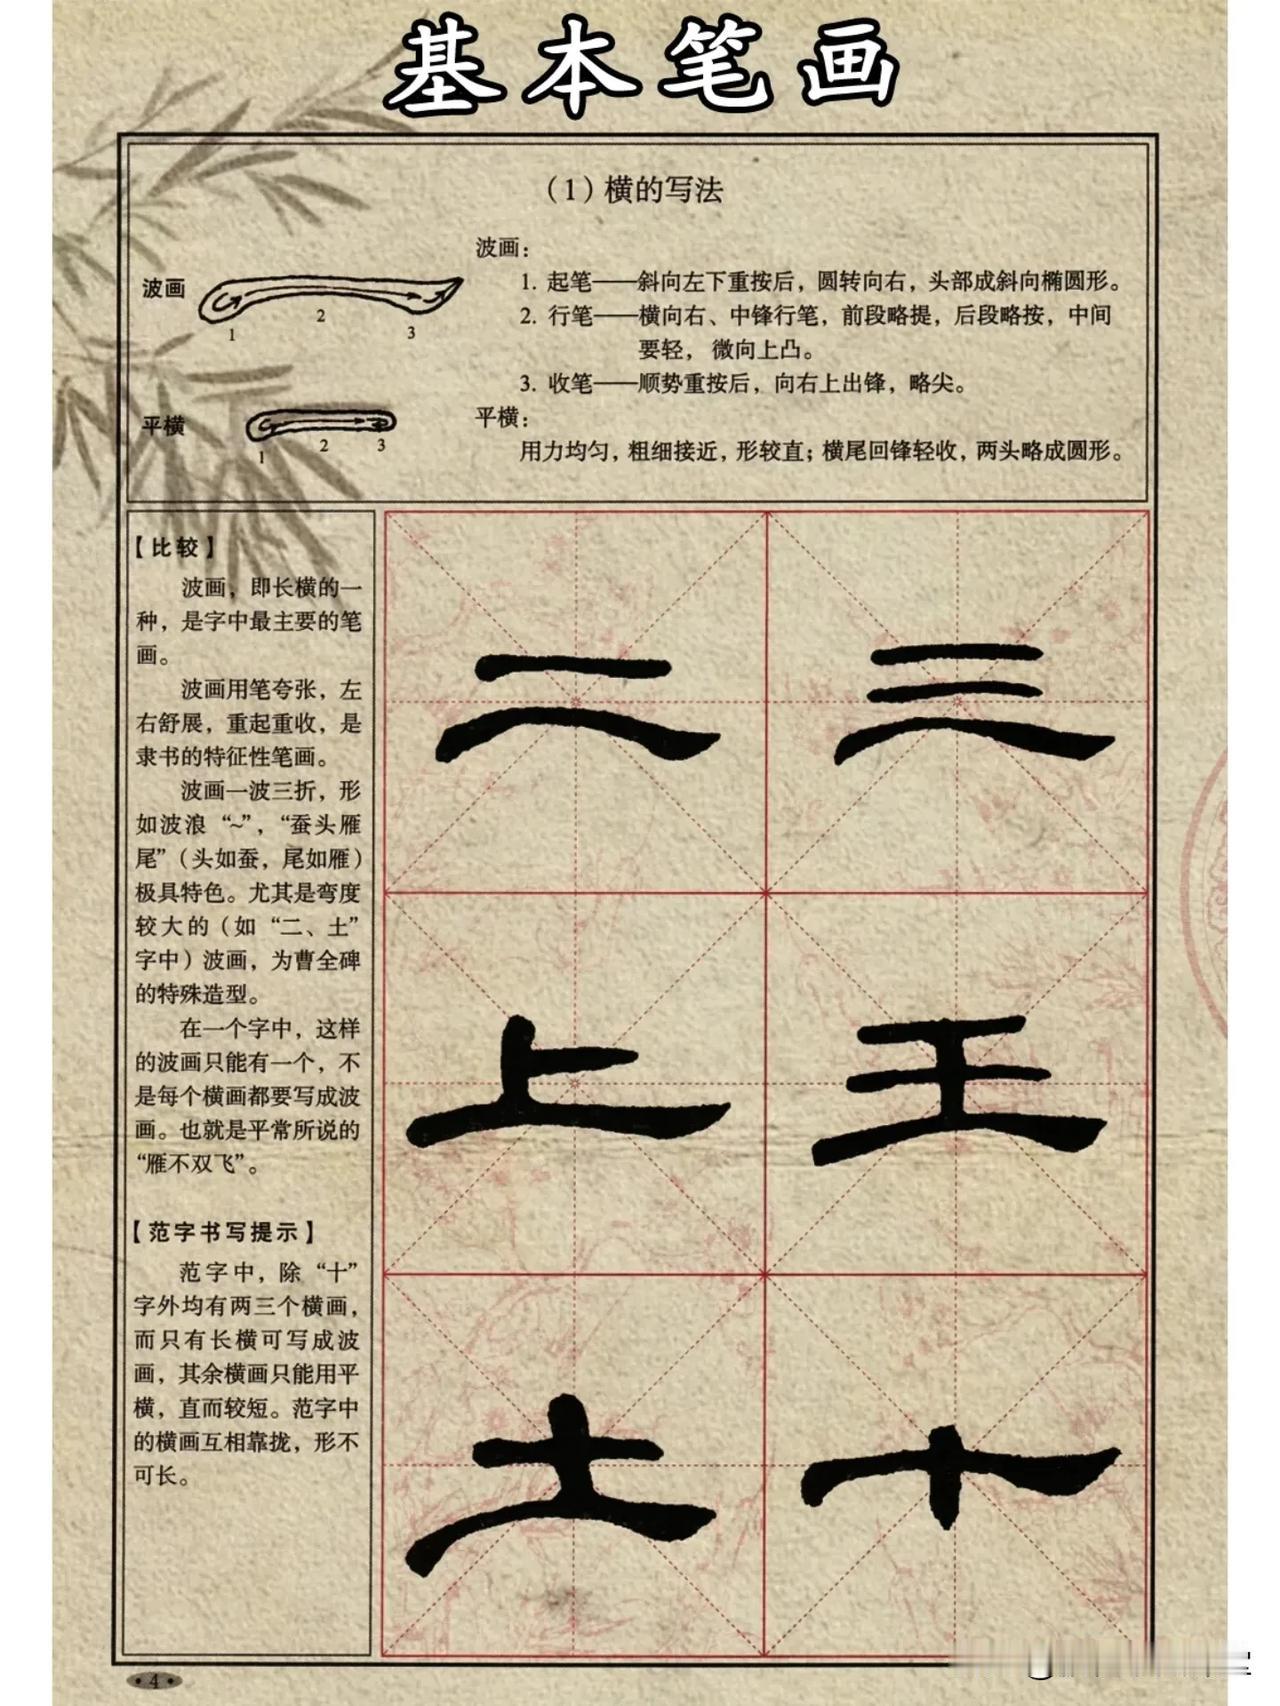 基本笔画
（1）横的写法
波画
1
2
3
平横
1
2
3
波画：
1. 起笔——斜向左下重按后，圆转向右，头部成斜向椭圆形。
2. 行笔——横向右、中锋行笔，前段略提，后段略按，中间
要轻，微向上凸。
3. 收笔——顺势重按后，向右上出锋，略尖。
平横：
用力均匀，粗细接近，形较直；横尾回锋轻收，两头略成圆形。
【比较】
波画，即长横的一
种，是字中最主要的笔
画。
波画用笔夸张，左
右舒展，重起重收，是
隶书的特征性笔画。
波画一波三折，形
如波浪“~”，“蚕头雁
尾”（头如蚕，尾如雁）
极具特色。尤其是弯度
较大的（如“二、土”
字中）波画，为曹全碑
的特殊造型。
在一个字中，这样
的波画只能有一个，不
是每个横画都要写成波
画。也就是平常所说的
“雁不双飞”。
【范字书写提示】
范字中，除“十”
字外均有两三个横画，
而只有长横可写成波
画，其余横画只能用平
横，直而较短。范字中
的横画互相靠拢，形不
可长。
二 三
上 王
土 十
·4·